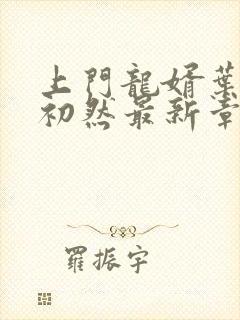 上門龍婿葉
初然最新章
羅振宇